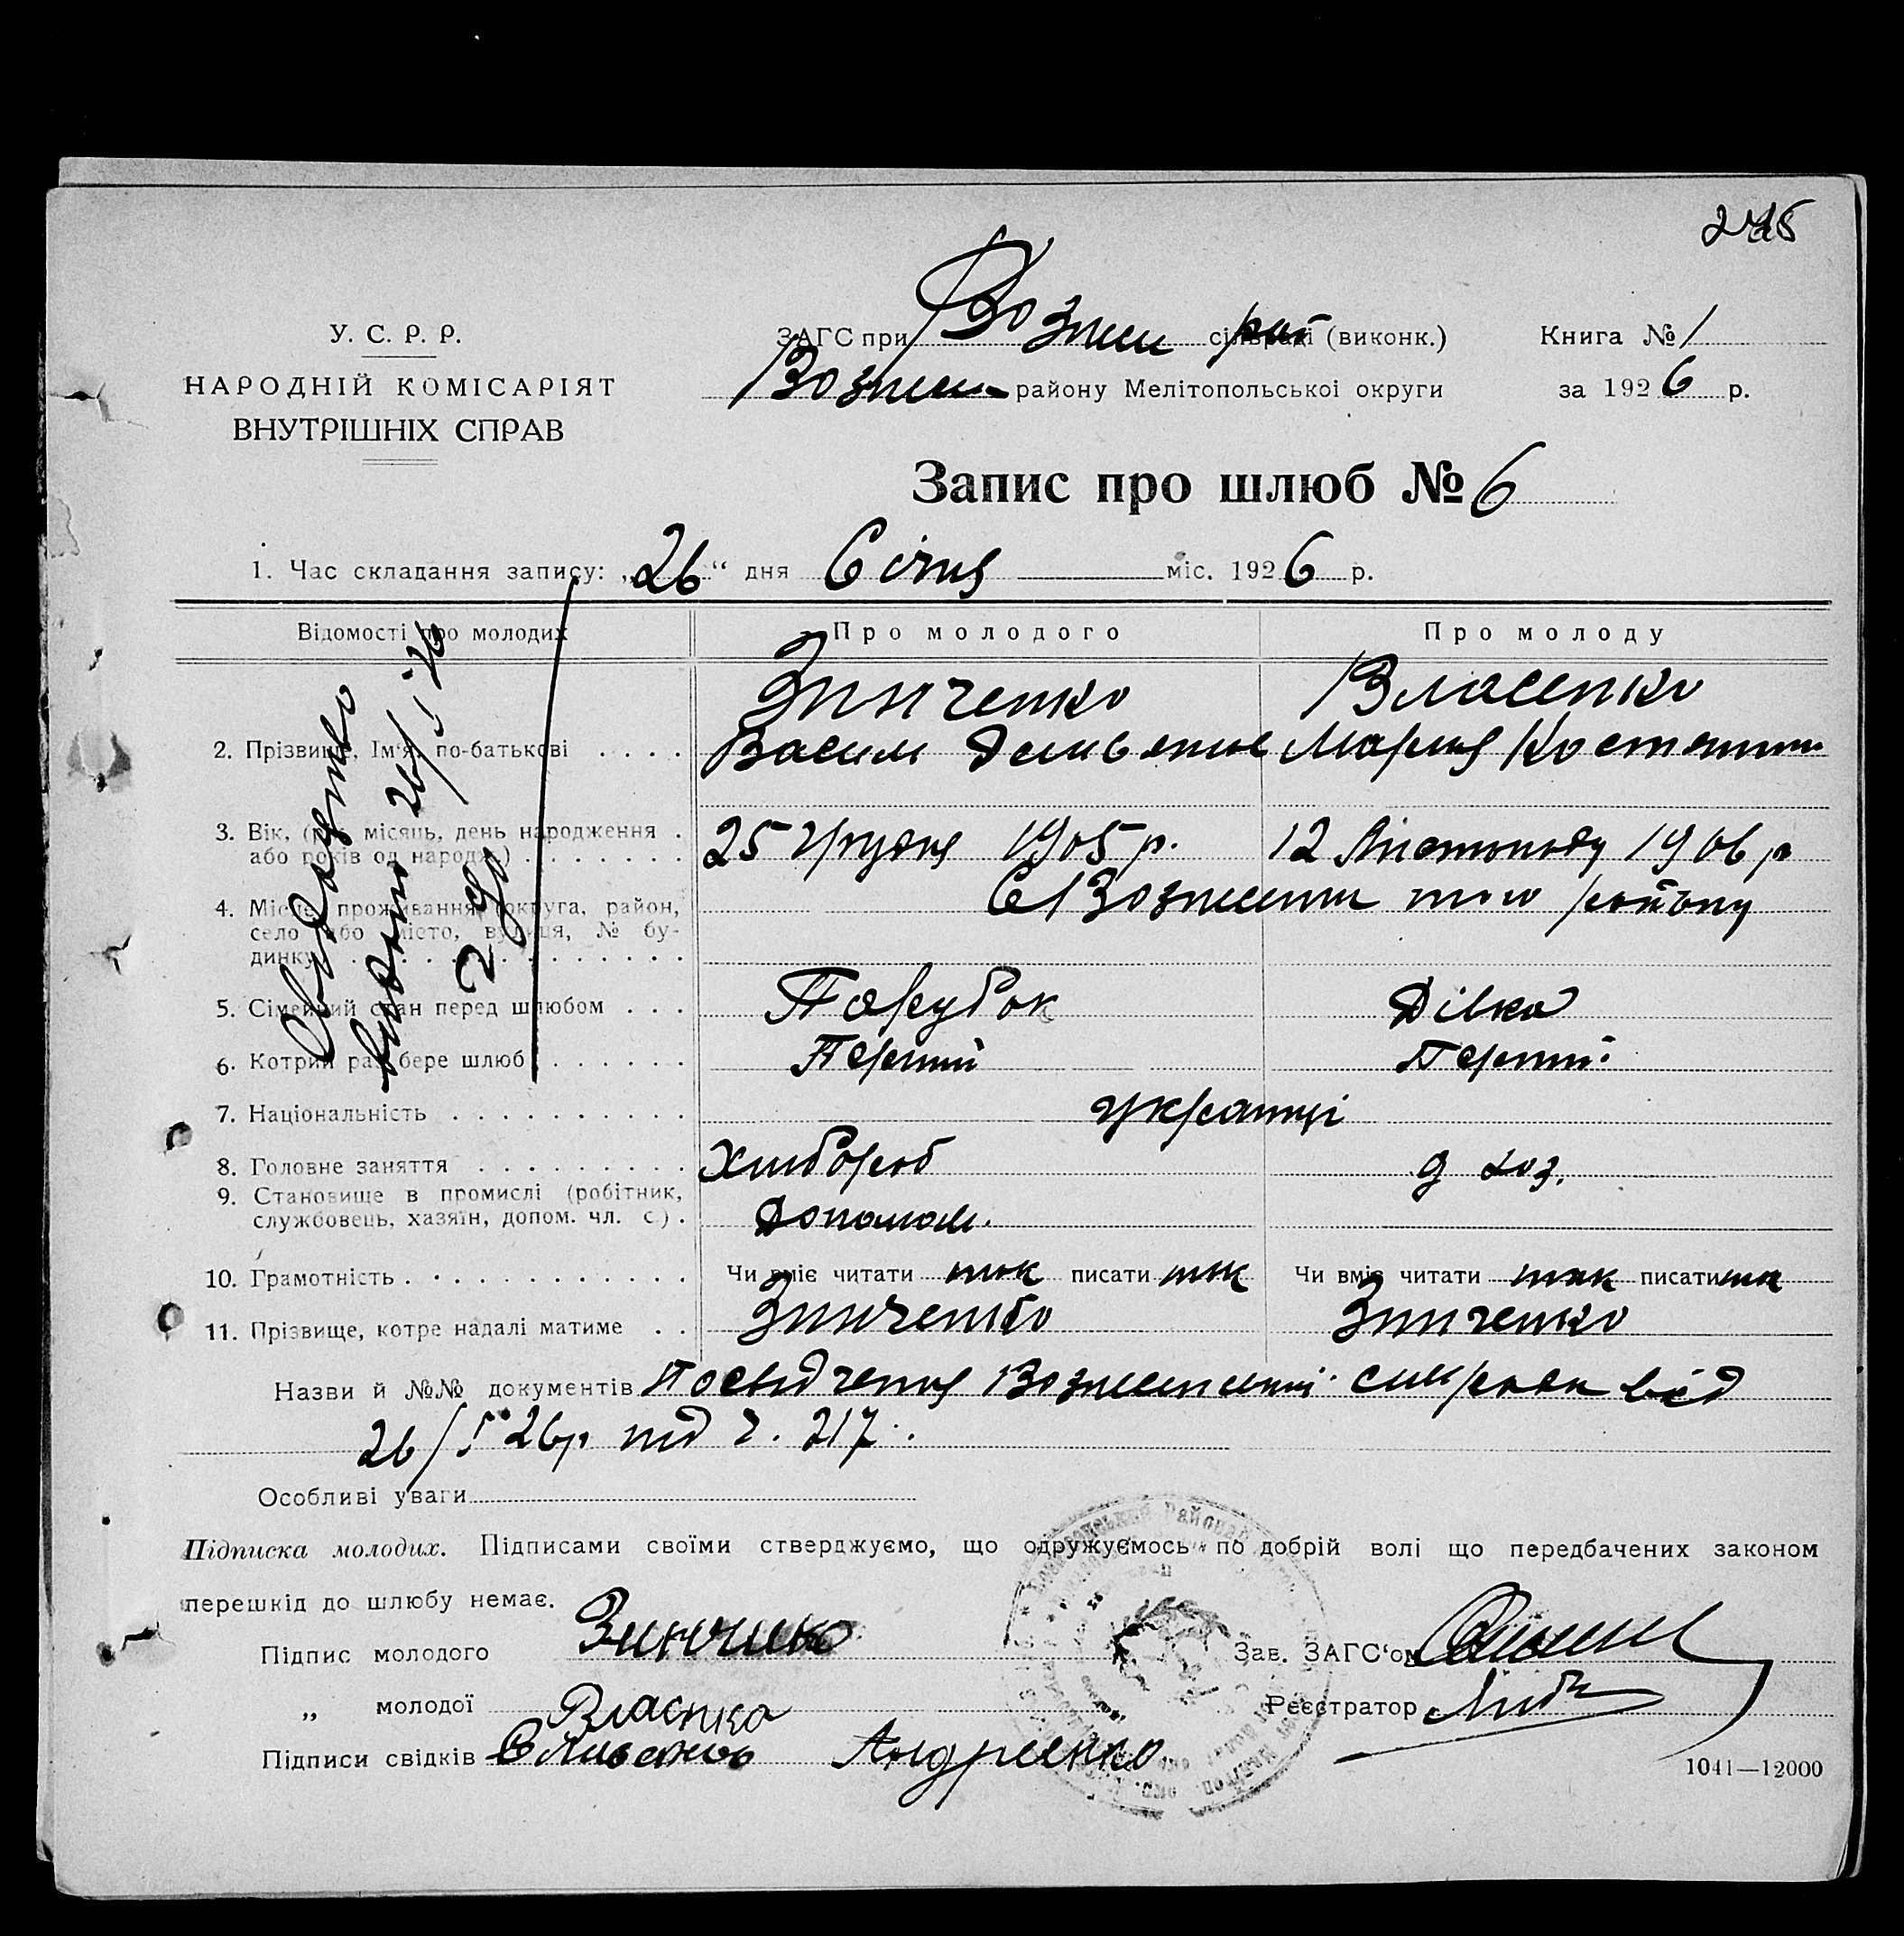 У. С. Р. Р.
НАРОДНІЙ КОМІСАРІЯТ
ВНУТРІШНІХ СПРАВ
ЗАГС при Возниш сільраді (виконк.) Книга № 1
Возниш району Мелітопольської округи за 1926 р.
Запис про шлюб № 6
1. Час складання запису: „26“ дня Січня міс. 1926 р.
Відомості про молодих Про молодого Про молоду
Зинченко Власенко
2. Прізвище, Ім‘я, по-батькові . . . . Васил Мария
3. Вік, (рік, місяць, день народження . 25 Грудня 1905 р. 12 Листопаду 1906 р
або років од народж.) . . . . . . .
4. Місце проживання (округа, район, С Вознесенки того району
село або місто, вулиця, № бу-
динку) . . . . . . . . . . . . . .
5. Сімейний стан перед шлюбом . . . Парубок Дівка
6. Котрий раз бере шлюб . . . . . . Перший Перший
7. Національність . . . . . . . . . . українці
8. Головне заняття . . . . . . . . . Хлибороб д хоз.
9. Становище в промислі (робітник,
службовець, хазяїн, допом. чл. с.) . Допомаг.
10. Грамотність . . . . . . . . . . . . Чи вміє читати так писати так Чи вміє читати так писати так
11. Прізвище, котре надалі матиме . . Зинченко Зинченко
Назви й №№ документів Посвідчення від
26/I 26р. під ч. 217.
Особливі уваги
Підписка молодих. Підписами своїми стверджуємо, що одружуємось по добрій волі що передбачених законом
перешкід до шлюбу немає.
Підпис молодого Зинчинко
Зав. ЗАГС‘ом
„ молодої
Реєстратор
Підписи свідків Андриенко
1041—12000